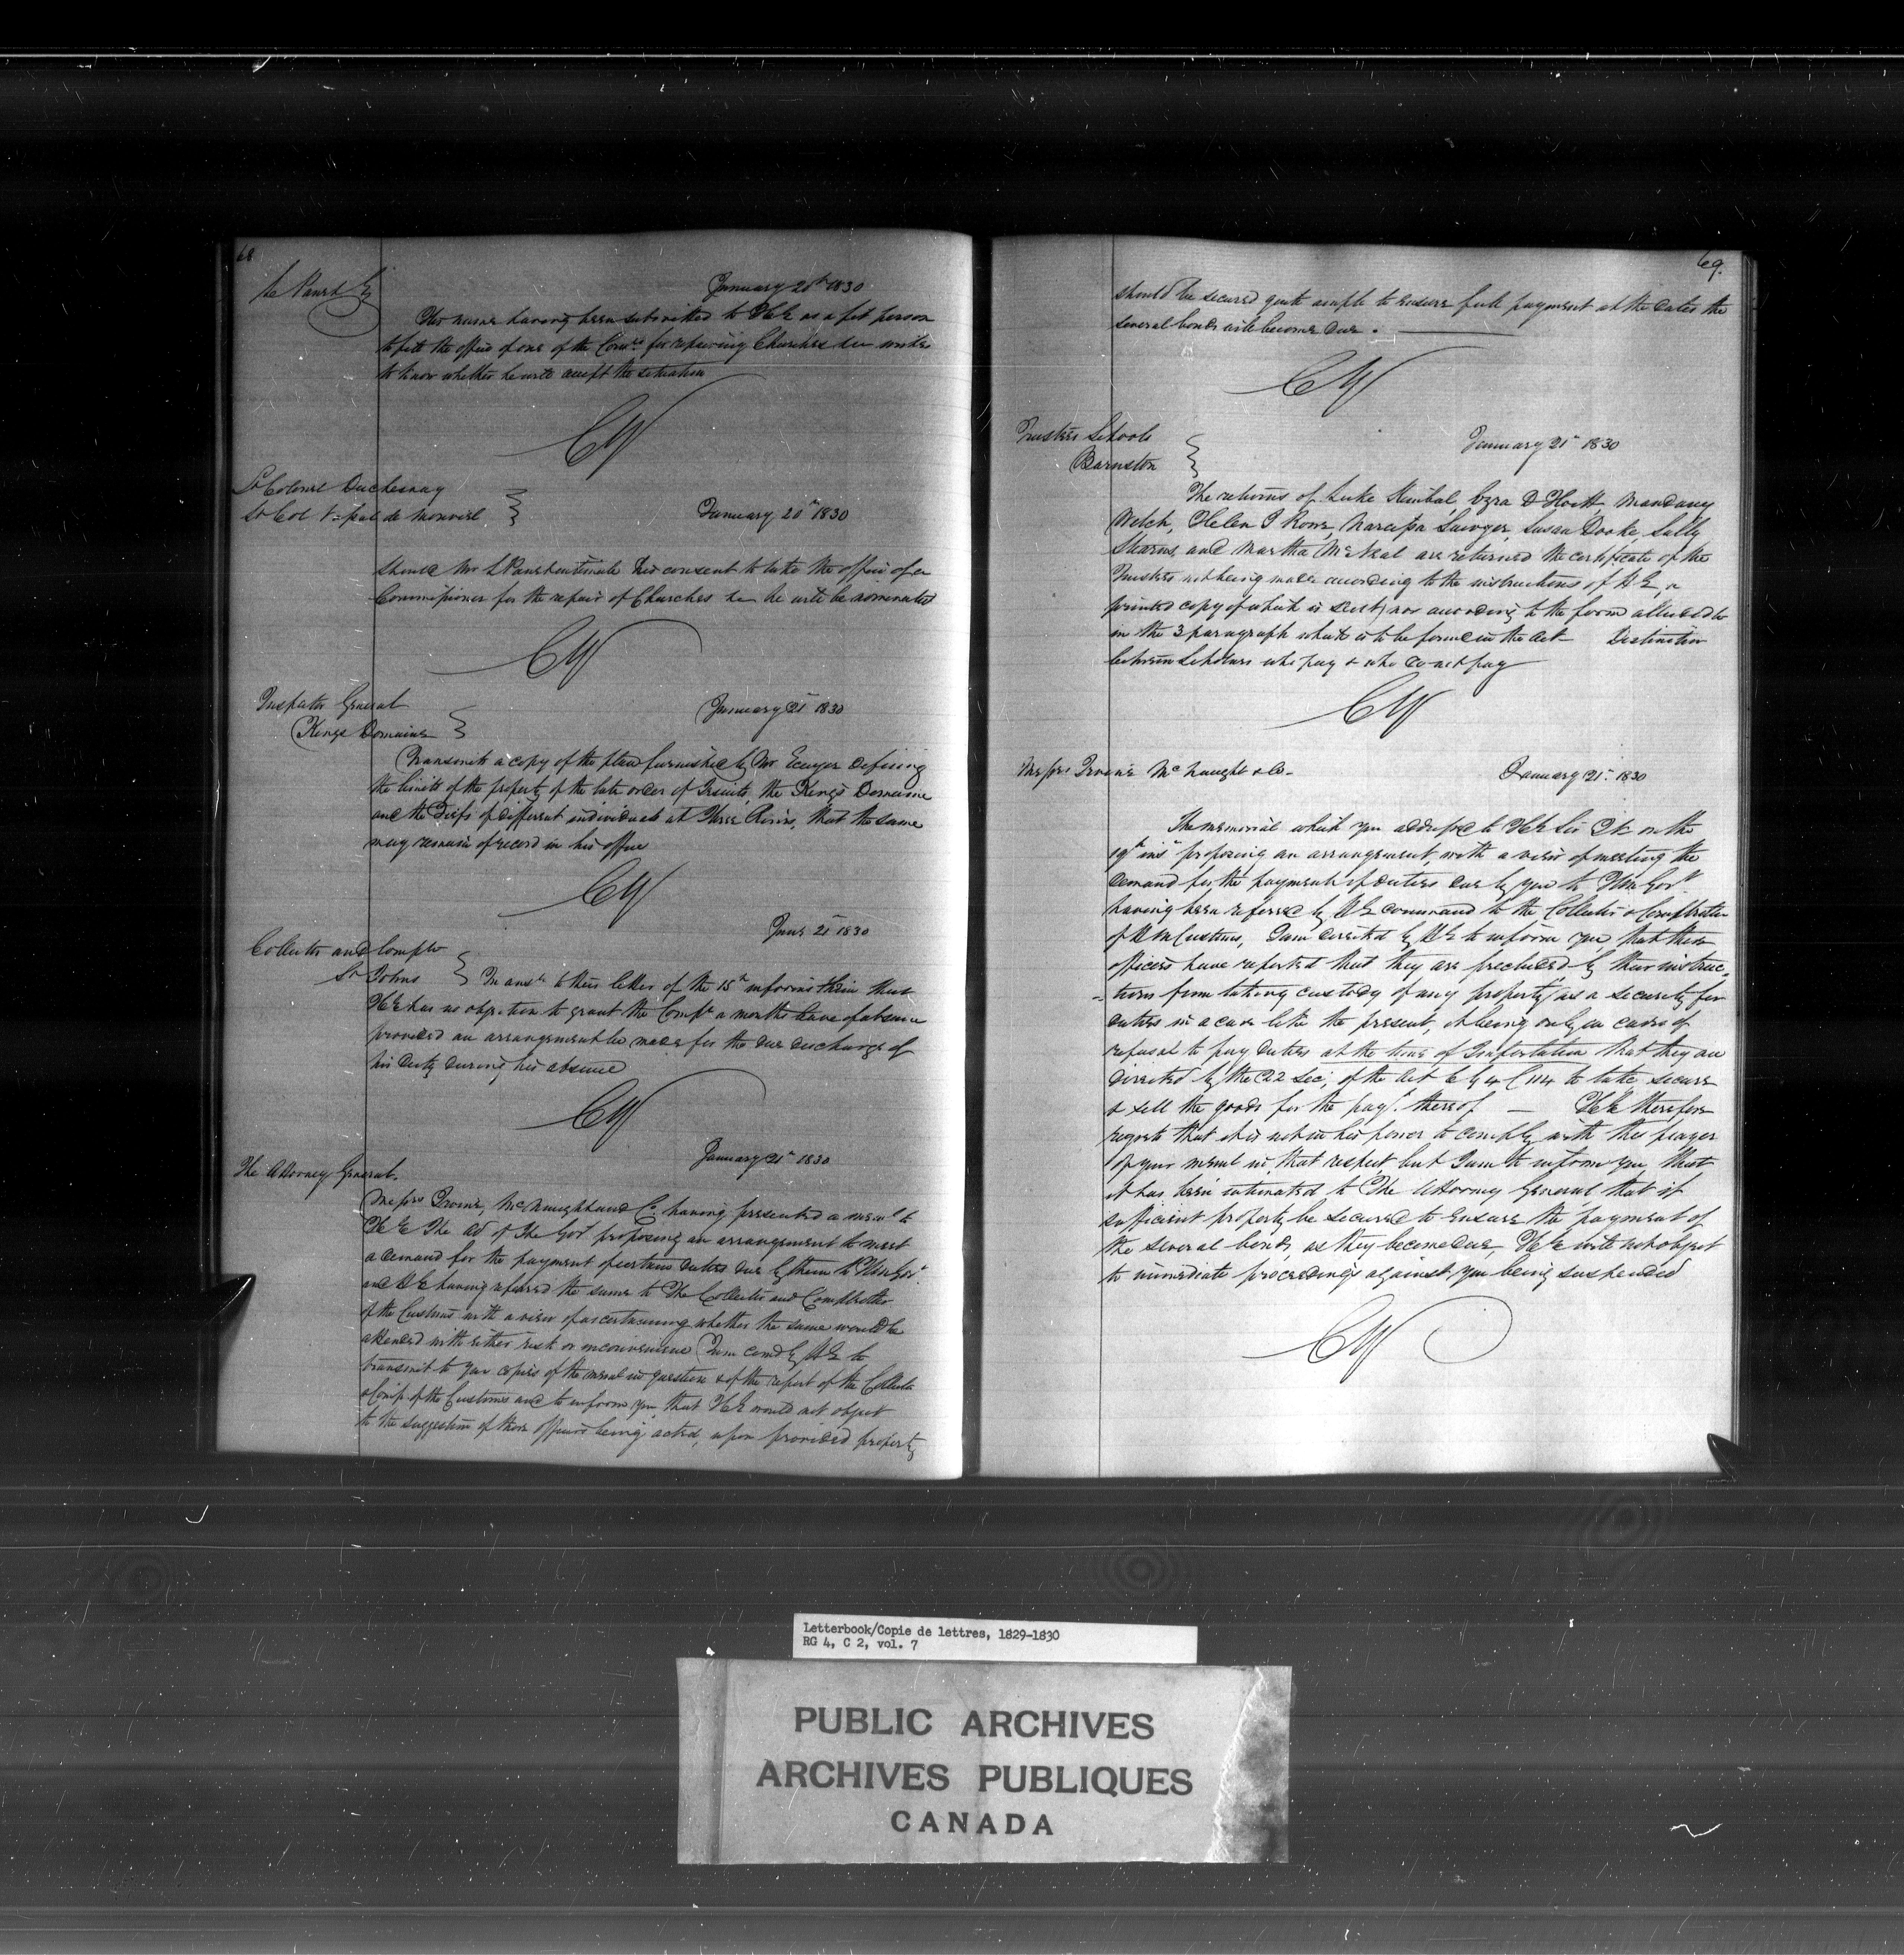 68
January 20th 1830
His name having been submitted to H E as a fit person
to fill the office of one of the Comrs for repairing Churches &c wishes
to know whether he will accept the situation
CY
Lt Colonel Duchesnay
Lt Col de
January 20th 1830
Should Mr L Panet intimate his consent to take the office of a
Commissioner for the repair of Churches &c he will be nominated
CY
Inspector General
Kings Domaine
January 21st 1830
Transmits a copy of the plan furnished by Mr Ecuyer defining
the limits of the property of the late order of Jesuits, the King's Domaine
and the Fiefs of different individuals at Three Rivers, that the same
may remain of record in his office
CY
Jany 21st 1830
Collector and Compr
St Johns
In ansr to their letter of the 15th informs them that
H E has no objection to grant the Compr a months leave of absence
provided an arrangement be made for the due discharge of
his duty during his absence
CY
January 21st 1830
The Attorney General.
Messrs Irvine, McNaught and Co. having presented a meml to
H E The Ad of The Govt proposing an arrangement to meet
a demand for the payment of certain duties due by them to H M Govt
and H E having referred the same to The Collector and Comptroller
of the Customs with a view of ascertaining whether the same would be
attended with either risk or inconvenience I am comd by H E to
transmit to you copies of the meml in question & of the report of the Collector
& Comp. of the Customs and to inform you that H E would not object
to the suggestion of those officers being acted upon provided property
69.
should be secured quite ample to ensure full payment at the dates the
several bonds will become due.
CY
Trustees Schools
Barnston
January 21st 1830
The returns of Luke Kimbal, Ezra D Hoitt, Mandany
Welch, Helen J Rowe, Narcissa Sawyer, Susan Dooke, Sally
Stearns, and Martha McNeal are returned the certificate of the
Trustees not being made according to the instructions of H E, (a
printed copy of which is sent) nor according to the form alluded to
in the 3 paragraph which is to be found in the Act Distinction
between Scholars who pay & who do not pay
CY
Messrs Irvine McNaught & Co.
January 21st 1830
The memorial which you addressed to H E Sir J K on the
19th inst proposing an arrangement, with a view of meeting the
demand for the payment of duties due by you to H M Govt.
having been referred by H E command to the Collector & Comptroller
of H M Customs, I am directed by H E to inform you, that these
officers have reported that they are precluded by their instruc-
-tions from taking custody of any property as a security for
duties in a case like the present, it being only in cases of
refusal to pay duties at the time of Importation that they are
directed by the 22 Sec; of the Act 6 G 4 C 114 to take secure
& sell the goods for the payt. thereof — H E therefore
regrets that it is not in his power to comply with the prayer
of your meml in that respect but I am to inform you, that
it has been intimated to The Attorney General that if
sufficient property be secured to ensure the payment of
the several bonds, as they become due, H E will not object
to immediate proceedings against you being suspended
CY
Letterbook/Copie de lettres, 1829-1830
RG 4, C 2, vol. 7
PUBLIC ARCHIVES
ARCHIVES PUBLIQUES
CANADA